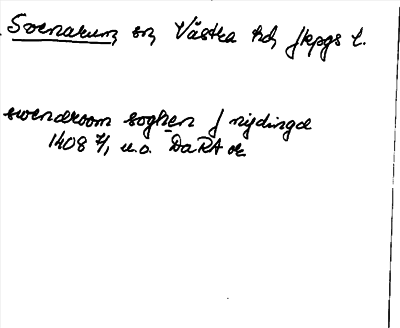 Svenarum, sn, Västra hd, Jkpgs l.
swenaroom soghen j nydinge
1408 7/1 u.o. DaRA or